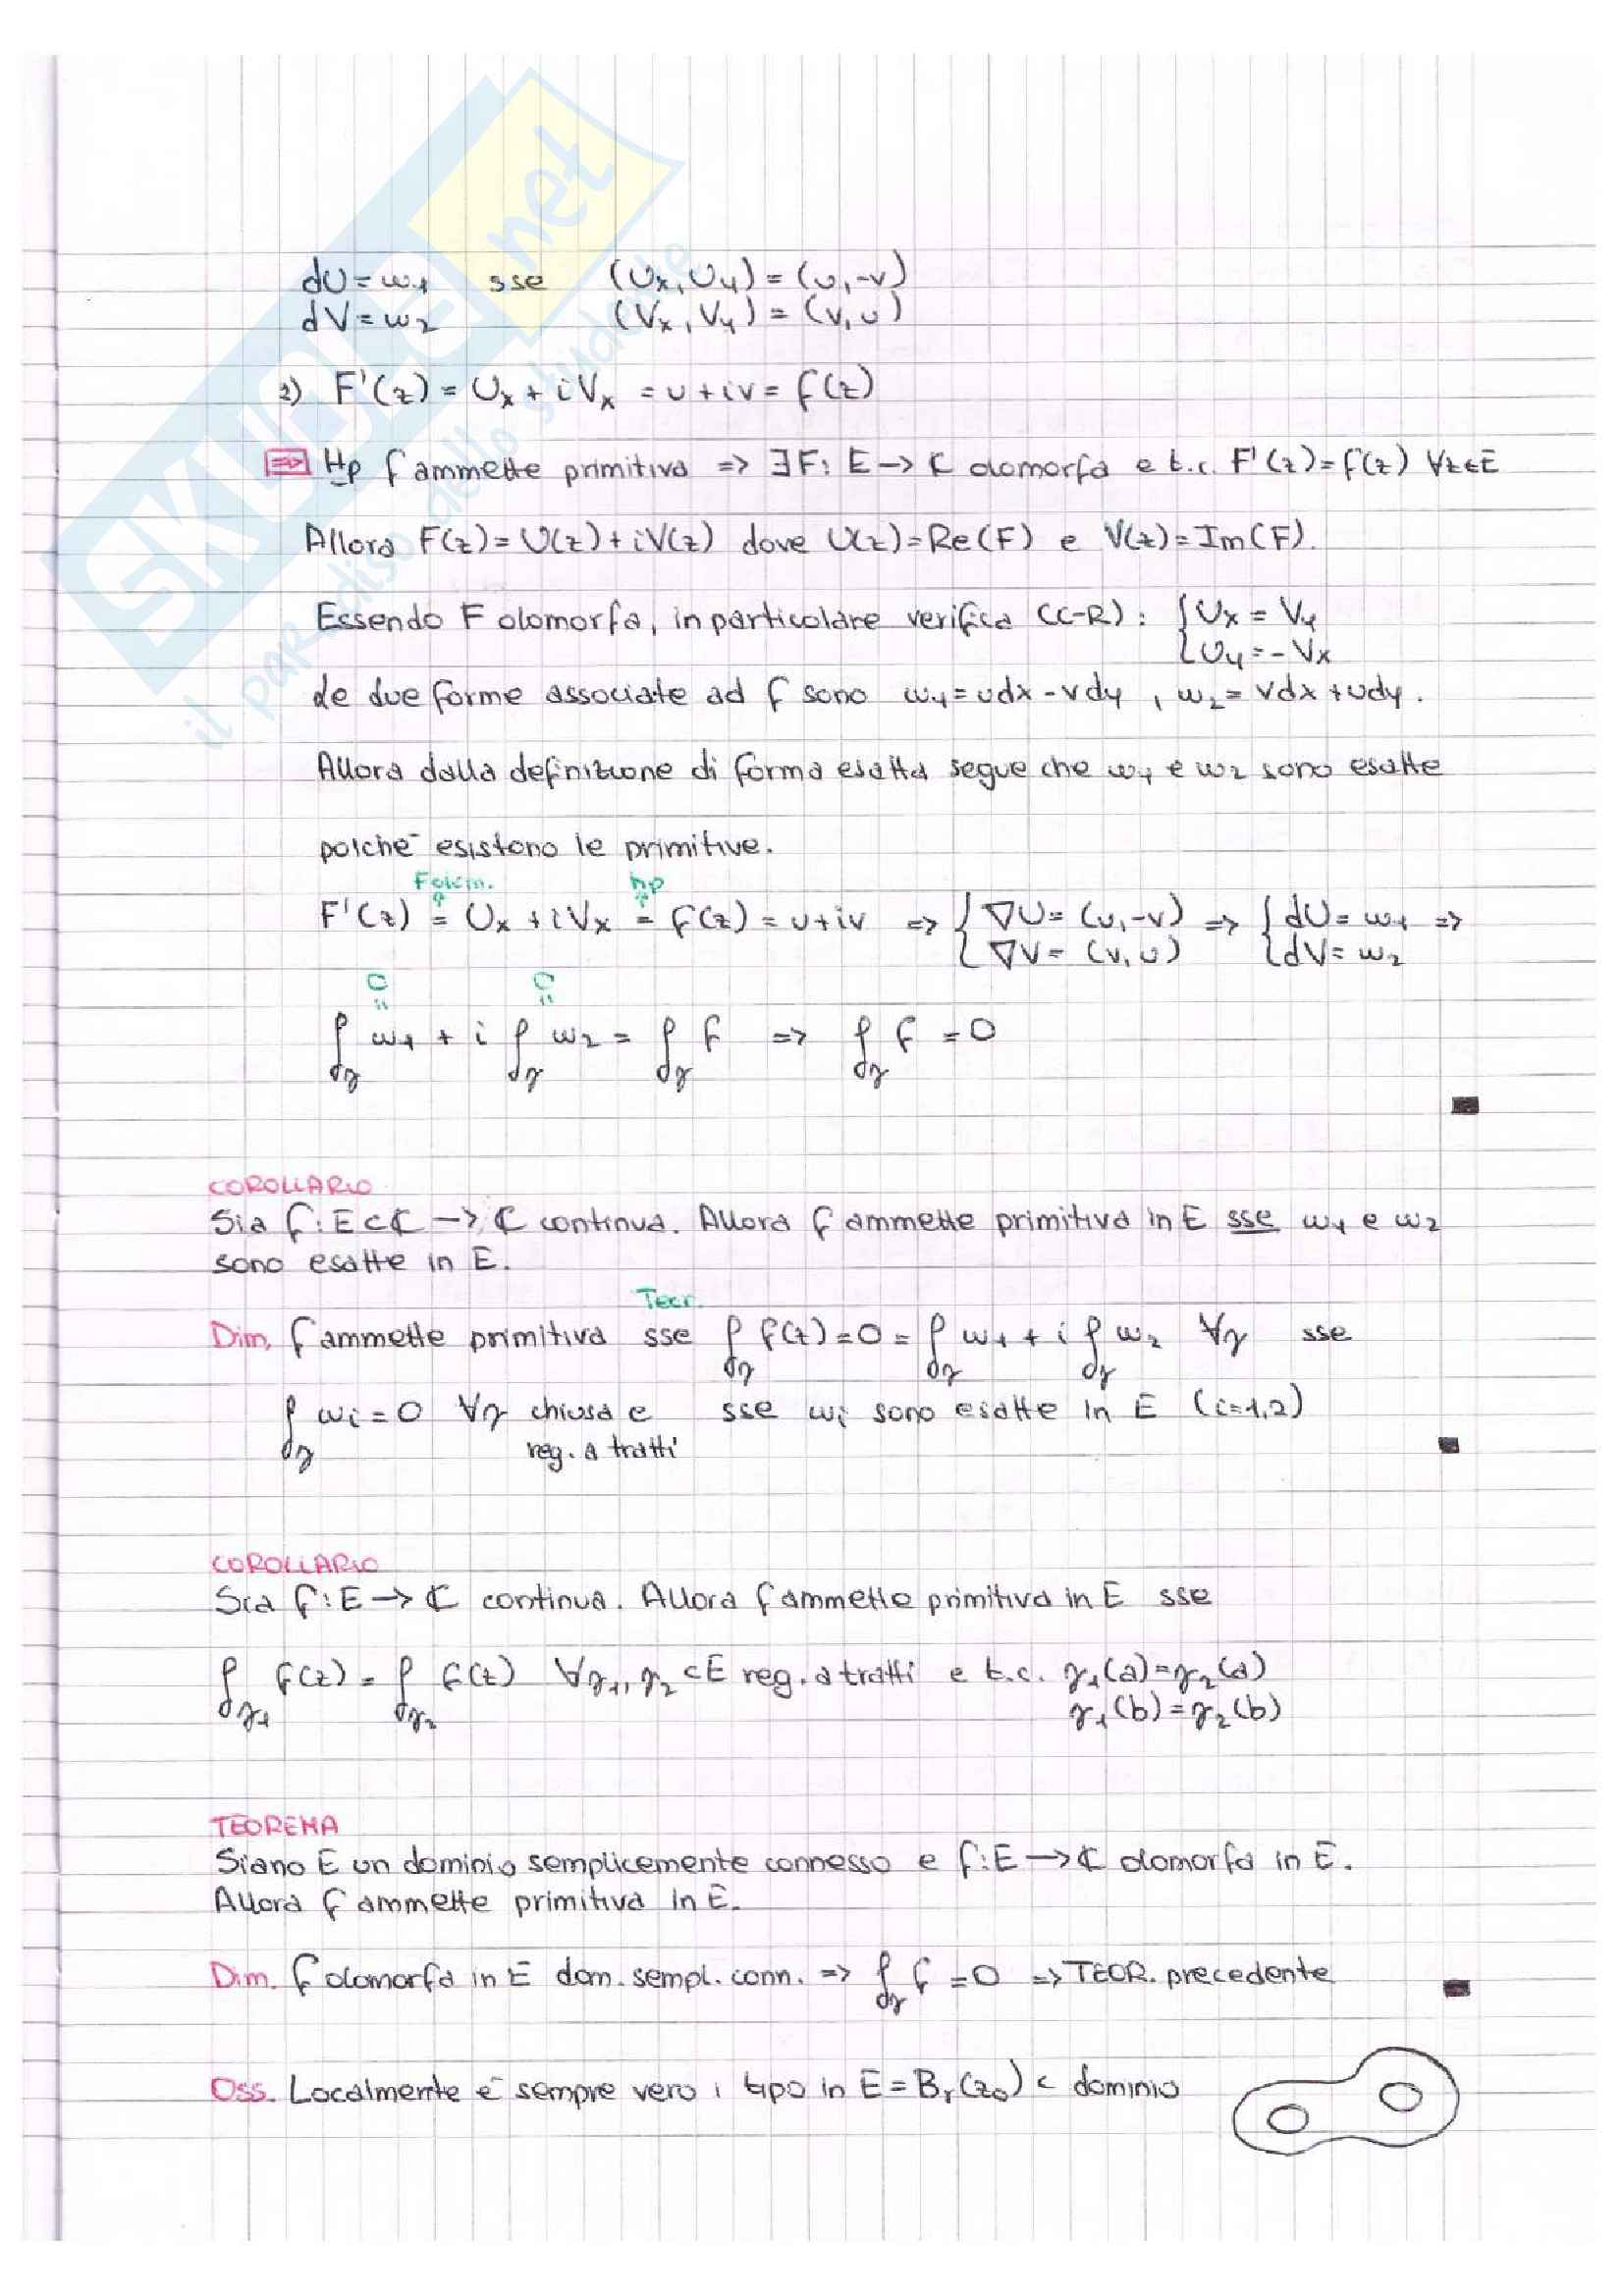 dU = ω₁ sse (Uₓ, U_y) = (u, -v)
dV = ω₂ (Vₓ, V_y) = (v, u)
2) F'(z) = Uₓ + iVₓ = u + iv = f(z)
=> Hp f ammette primitiva => ∃F: E → ℂ olomorfa e t.c. F'(z) = f(z) ∀z∈E
Allora F(z) = U(z) + iV(z) dove U(z) = Re(F) e V(z) = Im(F).
Essendo F olomorfa, in particolare verifica (C-R): { Uₓ = V_y
{ U_y = -Vₓ
Le due forme associate ad f sono ω₁ = udx - vdy, ω₂ = vdx + udy.
Allora dalla definizione di forma esatta segue che ω₁ e ω₂ sono esatte
poiché esistono le primitive.
F olom. hp
F'(z) = Uₓ + iVₓ = f(z) = u + iv => { ∇U = (u, -v) => { dU = ω₁ =>
{ ∇V = (v, u) { dV = ω₂
0 0
∫_γ ω₁ + i ∫_γ ω₂ = ∫_γ f => ∫_γ f = 0
COROLLARIO
Sia f: E ⊂ ℂ → ℂ continua. Allora f ammette primitiva in E sse ω₁ e ω₂
sono esatte in E.
Teor.
Dim. f ammette primitiva sse ∫_γ f(z) = 0 = ∫_γ ω₁ + i ∫_γ ω₂ ∀γ sse
∫_γ ωi = 0 ∀γ chiusa e sse ωi sono esatte in E (i=1,2)
reg. a tratti
COROLLARIO
Sia f: E → ℂ continua. Allora f ammette primitiva in E sse
∫_γ₁ f(z) = ∫_γ₂ f(z) ∀γ₁, γ₂ ⊂ E reg. a tratti e t.c. γ₁(a) = γ₂(a)
γ₁(b) = γ₂(b)
TEOREMA
Siano E un dominio semplicemente connesso e f: E → ℂ olomorfa in E.
Allora f ammette primitiva in E.
Dim. f olomorfa in E dom. sempl. conn. => ∫_γ f = 0 => TEOR. precedente
Oss. Localmente è sempre vero, tipo in E = Bᵣ(z₀) ⊂ dominio
SKUOLA.net
il paradiso dello studente